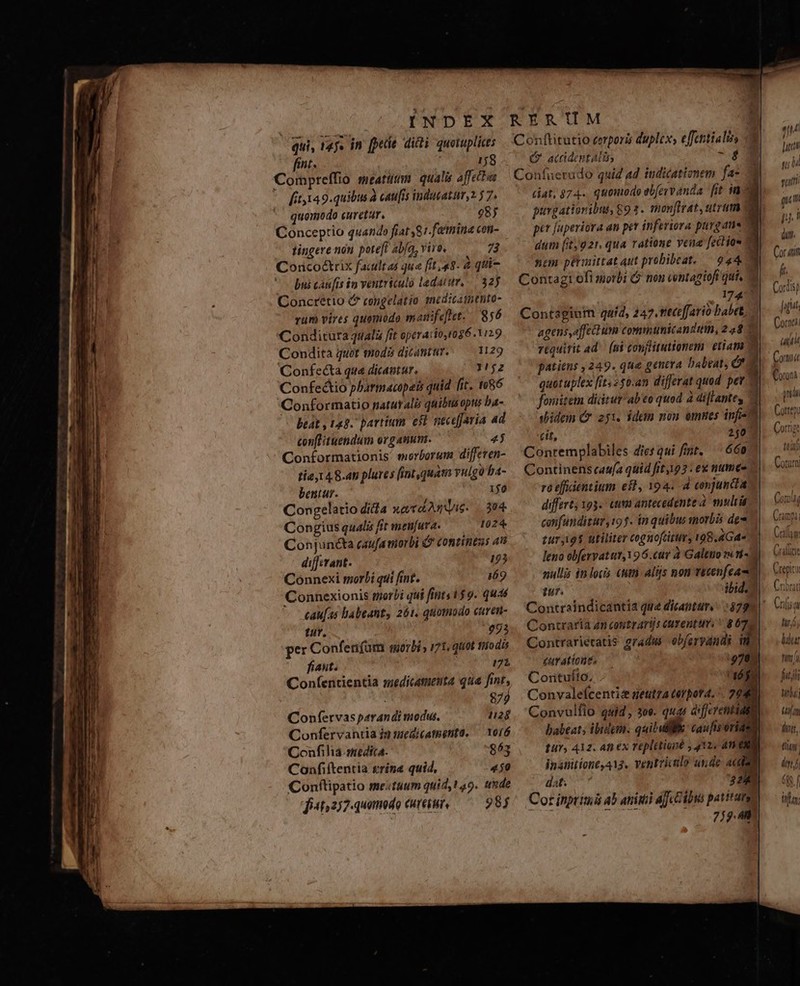 INDEX RERUM
qui, 145. in ſpecie dicti quotuplices
ſint. 158
Compreſſio meatuum qualis affectus
ſit, 149. quibus à cauſis inducatur, 257.
quomodo curetur. 985
Conceptio quando fiat, 81. fœmina con-
tingere non poteſt abſq; viro. 73
Concoctrix facultas quæ ſit, 48. à qui-
bus cauſis in ventriculo lædatur. 325
Concretio & congelatio medicamento-
rum vires quomodo manifeſtet. 856
Conditura qualis ſit operatio, 1086. 1129
Condita quot modis dicantur. 1129
Confecta quæ dicantur. 1152
Confectio pharmacopeis quid ſit. 1086
Conformatio naturalis quibus opus ha-
beat, 148. partium eſt neceſſaria ad
conſtituendum organum. 45
Conformationis morborum differen-
tiæ, 148. an plures ſint, quàm vulgò ha-
bentur. 150
Congelatio dicta κατάληψις. 304
Congius qualis ſit menſura. 1024
Conjuncta cauſa morbi & continens an
differant. 193
Connexi morbi qui ſint. 169
Connexionis morbi qui ſint, 159. quas
cauſas habeant, 261. quomodo curen-
tur. 993
per Conſenſum morbi, 171. quot modis
fiant. 172
Conſentientia medicamenta quæ ſint,
879
Conſervas parandi modus. 1128
Conſervantia in medicamento. 1016
Conſilia medica. 863
Conſiſtentia urinæ quid, 450
Conſtipatio meatuum quid, 149. unde
fiat, 257. quomodo curetur. 985
Conſtitutio corporis duplex, eſſentialis,
& accidentalis, 8
Conſuetudo quid ad indicationem fa-
ciat, 874. quomodo obſervanda ſit in
purgationibus, 893. monſtrat, utrum
per ſuperiora an per inferiora purgan-
dum ſit, 921. qua ratione venæ ſectio-
nem permittat aut prohibeat. 944
Contagioſi morbi & non contagioſi qui,
174
Contagium quid, 247. neceſſariò habet
agens, affectum communicandum, 248
requirit ad ſui conſtitutionem etiam
patiens, 249. quæ genera habeat, &
quotuplex ſit, 250. an differat quod per
fomitem dicitur ab eo quod à diſtante,
ibidem & 251. idem non omnes infi-
cit, 250
Contemplabiles dies qui ſint. 660
Continens cauſa quid ſit, 193. ex nume-
ro efficientium eſt, 194. à conjuncta
differt, 193. cum antecedente à multis
confunditur, 195. in quibus morbis de-
tur, 195 utiliter cognoſcitur, 198. à Ga-
leno obſervatur, 196. cur à Galeno in n-
nullis in locis cum aliis non recenſea-
tur. ibid.
Contraindicantia quæ dicantur. 879
Contraria an contrarijs curentur. 867
Contrarietatis gradus obſervandi in
curatione. 970
Contuſio. 163
Convaleſcentiæ neutra corpora. 794
Convulſio quid, 309. quas differentias
habeat, ibidem. quibus cauſis oria-
tur, 412. an ex repletione, 412. an ex
inanitione, 413. ventriculo unde acci-
dat. 324
Cor inprimis ab animi affectibus patitur,
759. an